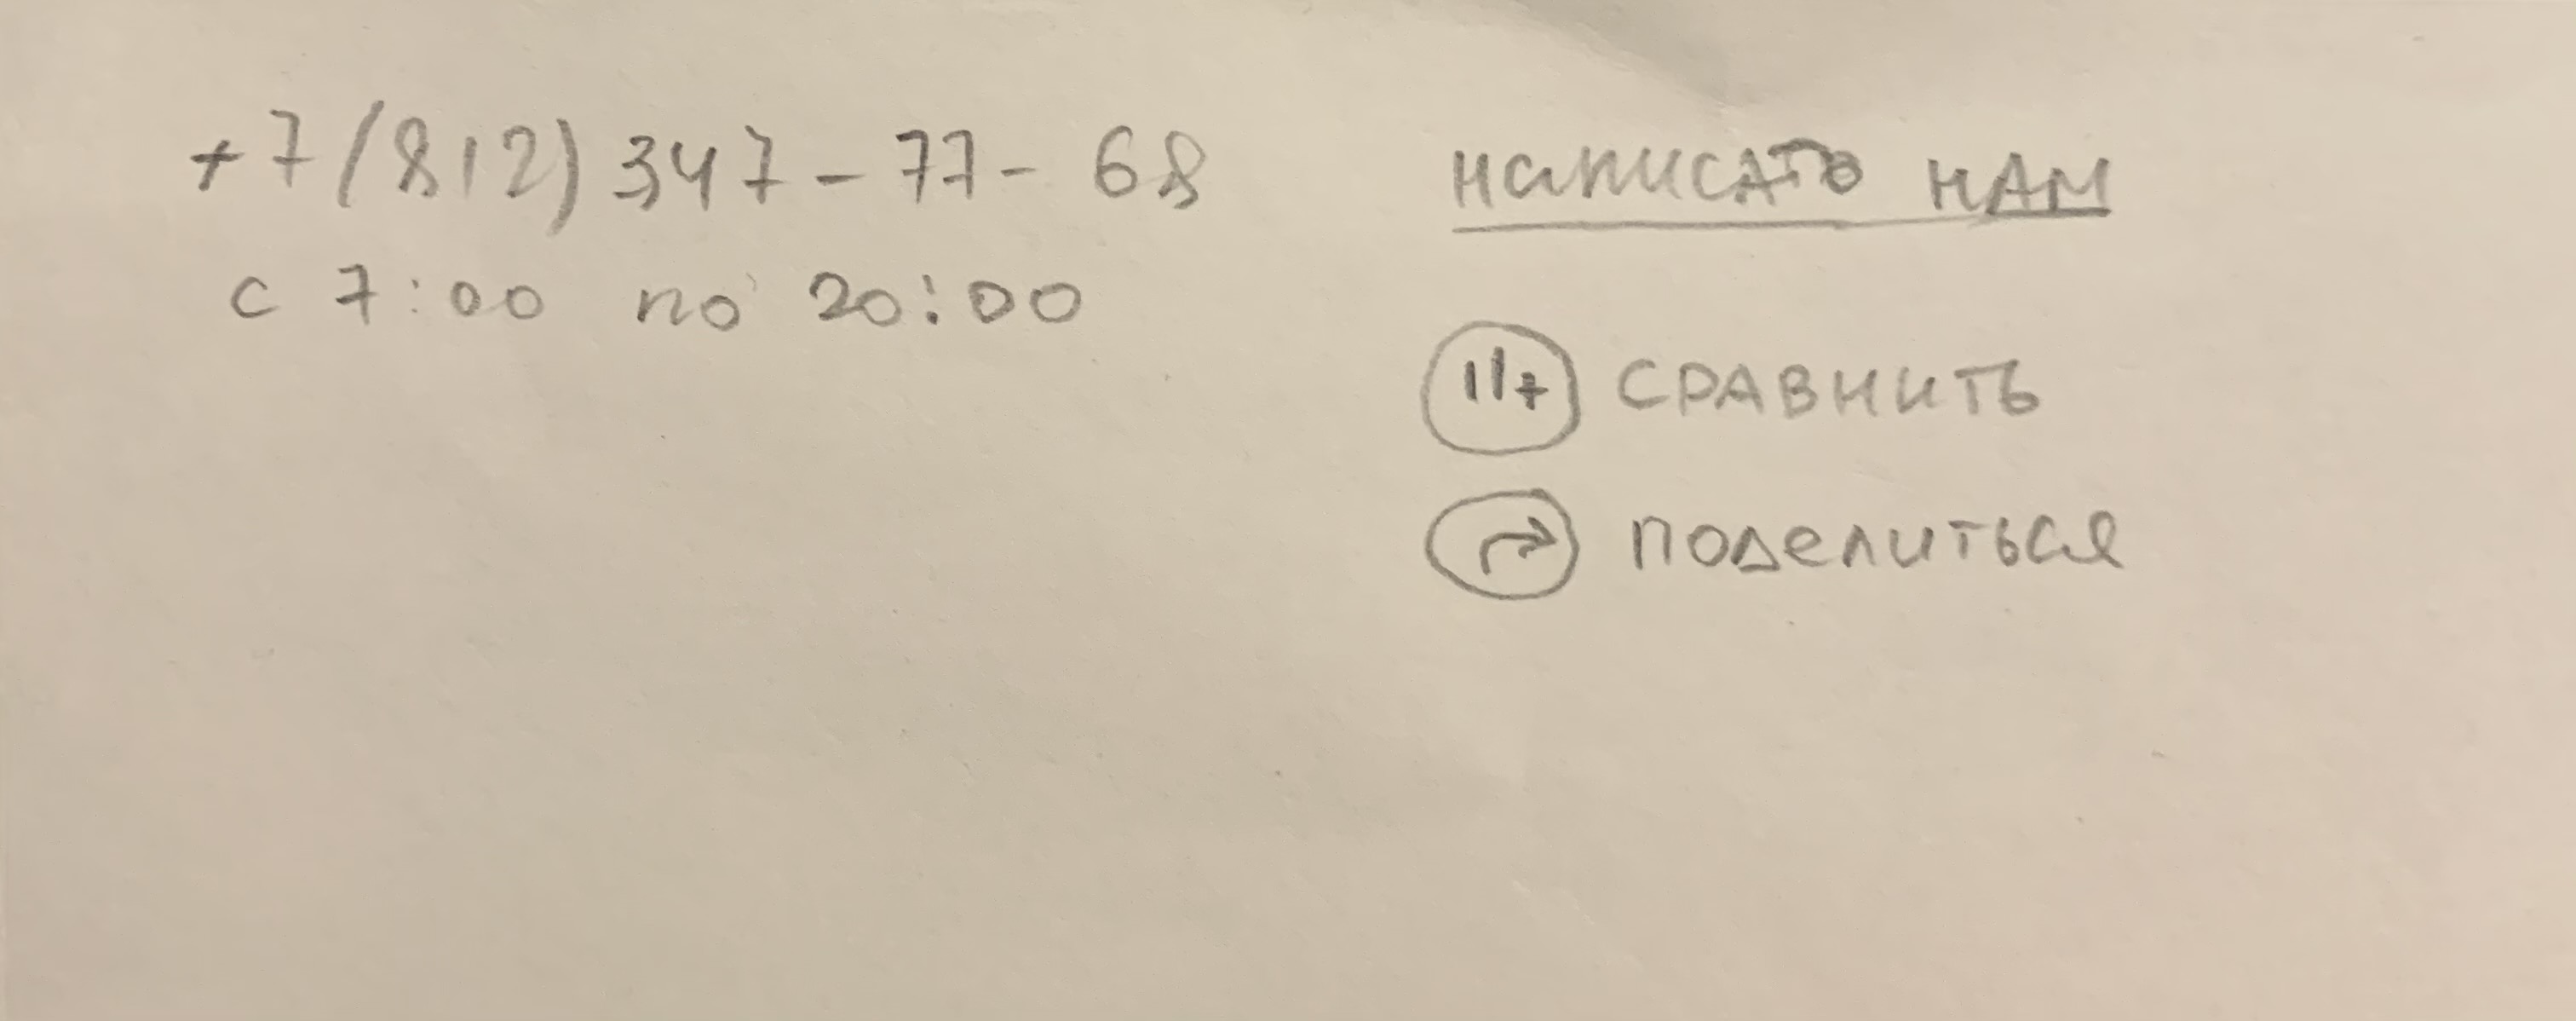 +7(812)347-77-68
с 7:00 по 20:00
написать нам
СРАВНИТЬ
поделиться